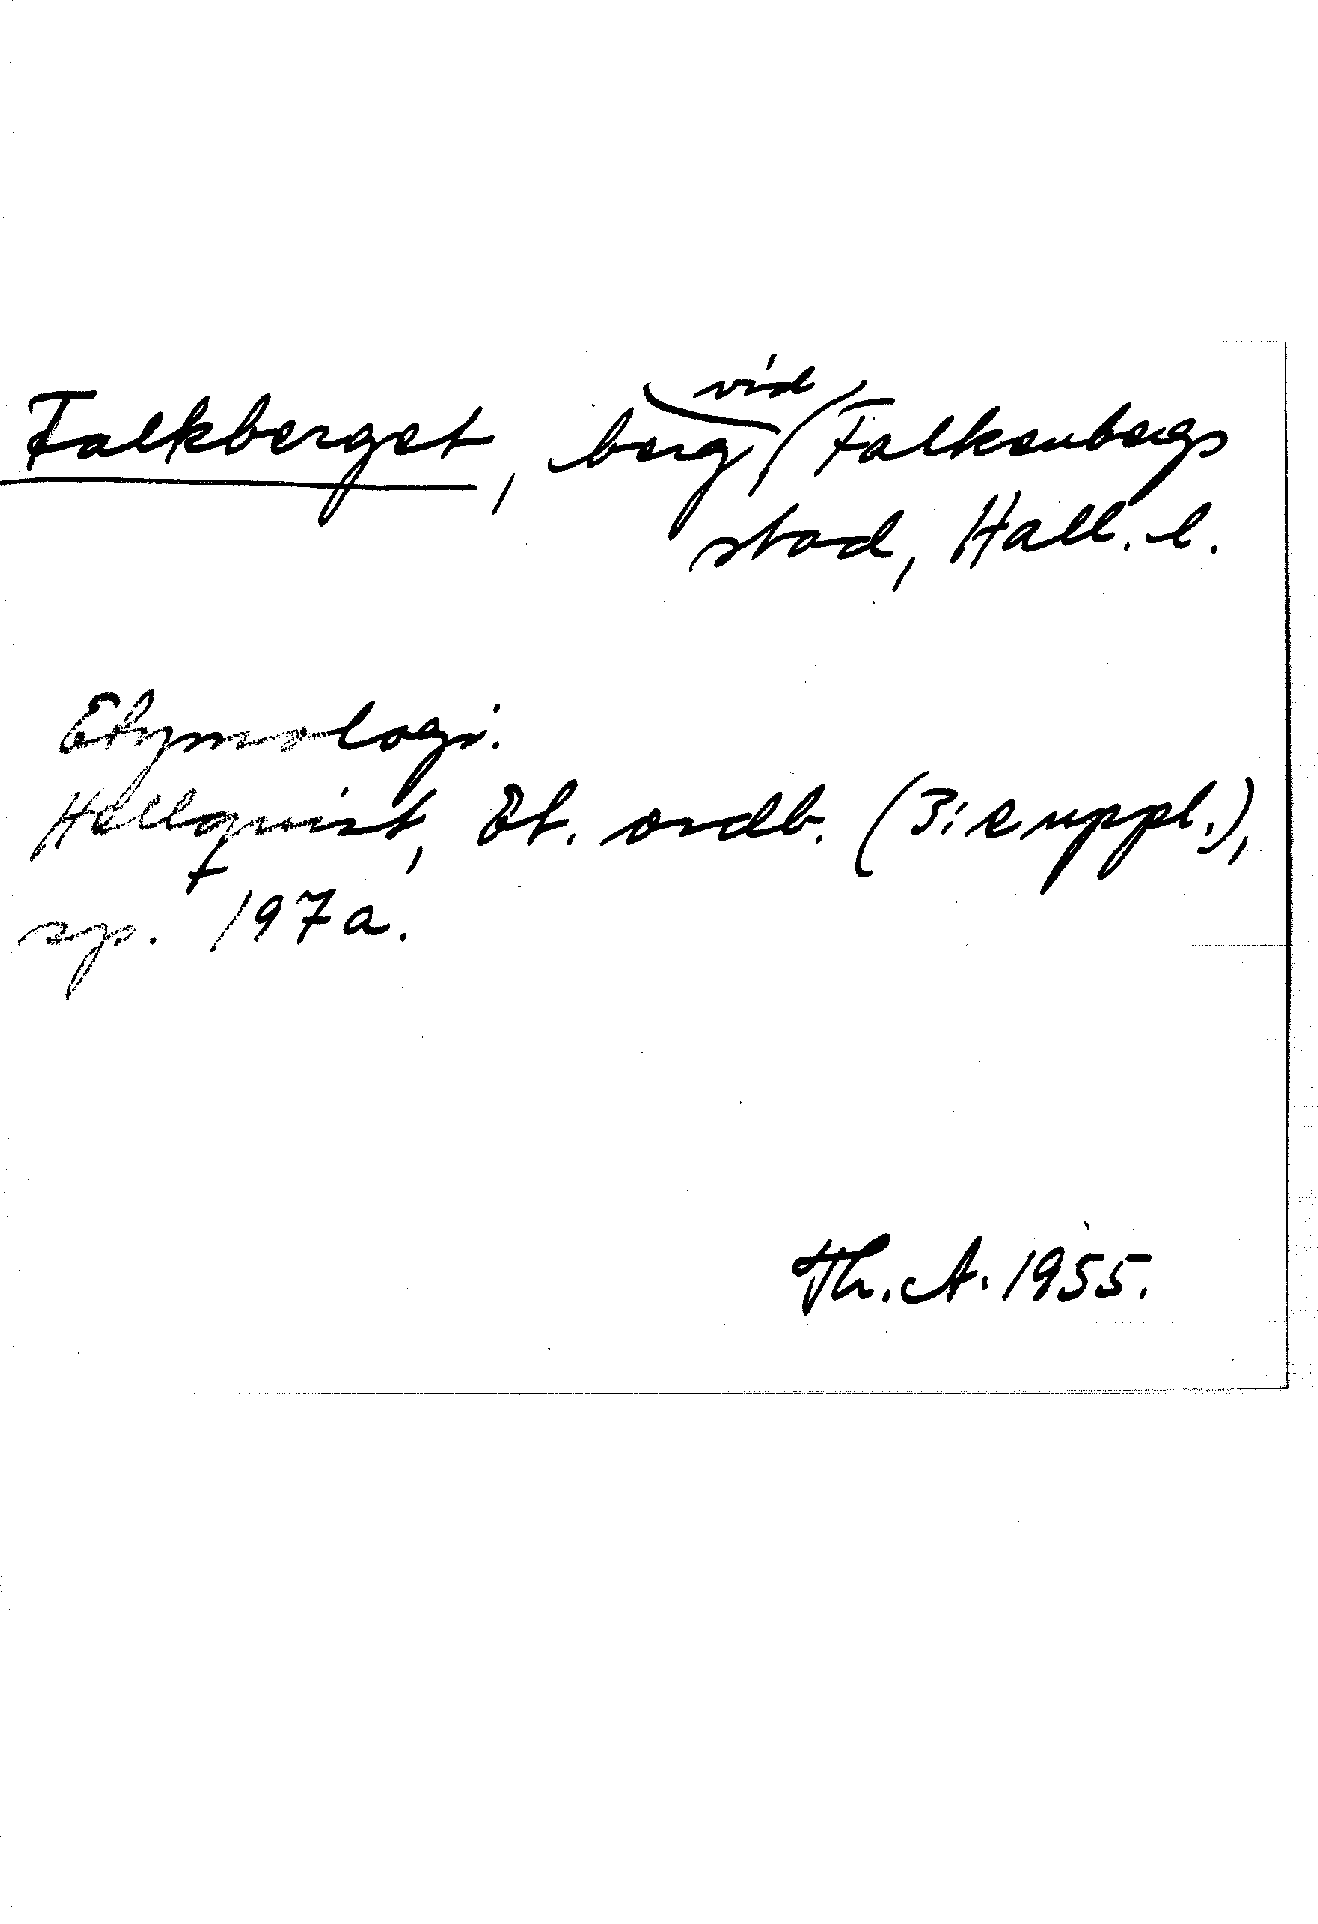 Falkberget, berg vid Falkenbergs
stad, Hall. l.
Etymologi.
Hellquist, Et. ordb. (3:e uppl.),
sp. 197a.
Th. A. 1955.